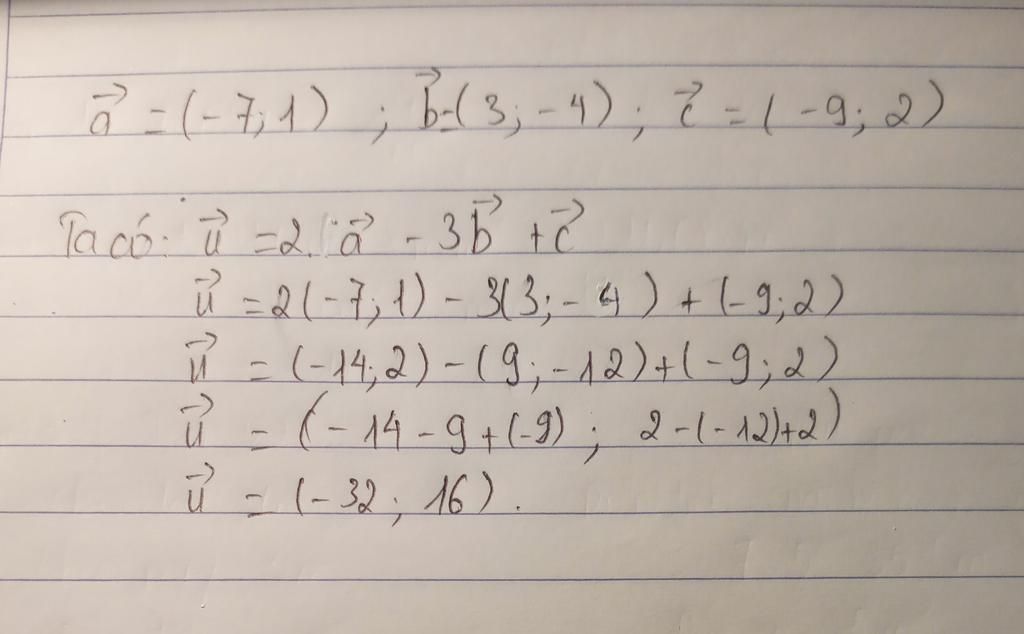 a⃗ = (-7; 1) ; b⃗ = (3; -4) ; c⃗ = (-9; 2)
Ta có: u⃗ = 2. a⃗ - 3b⃗ + c⃗
u⃗ = 2(-7; 1) - 3(3; -4) + (-9; 2)
u⃗ = (-14; 2) - (9; -12) + (-9; 2)
u⃗ = (-14 - 9 + (-9) ; 2 - (-12) + 2)
u⃗ = (-32; 16).